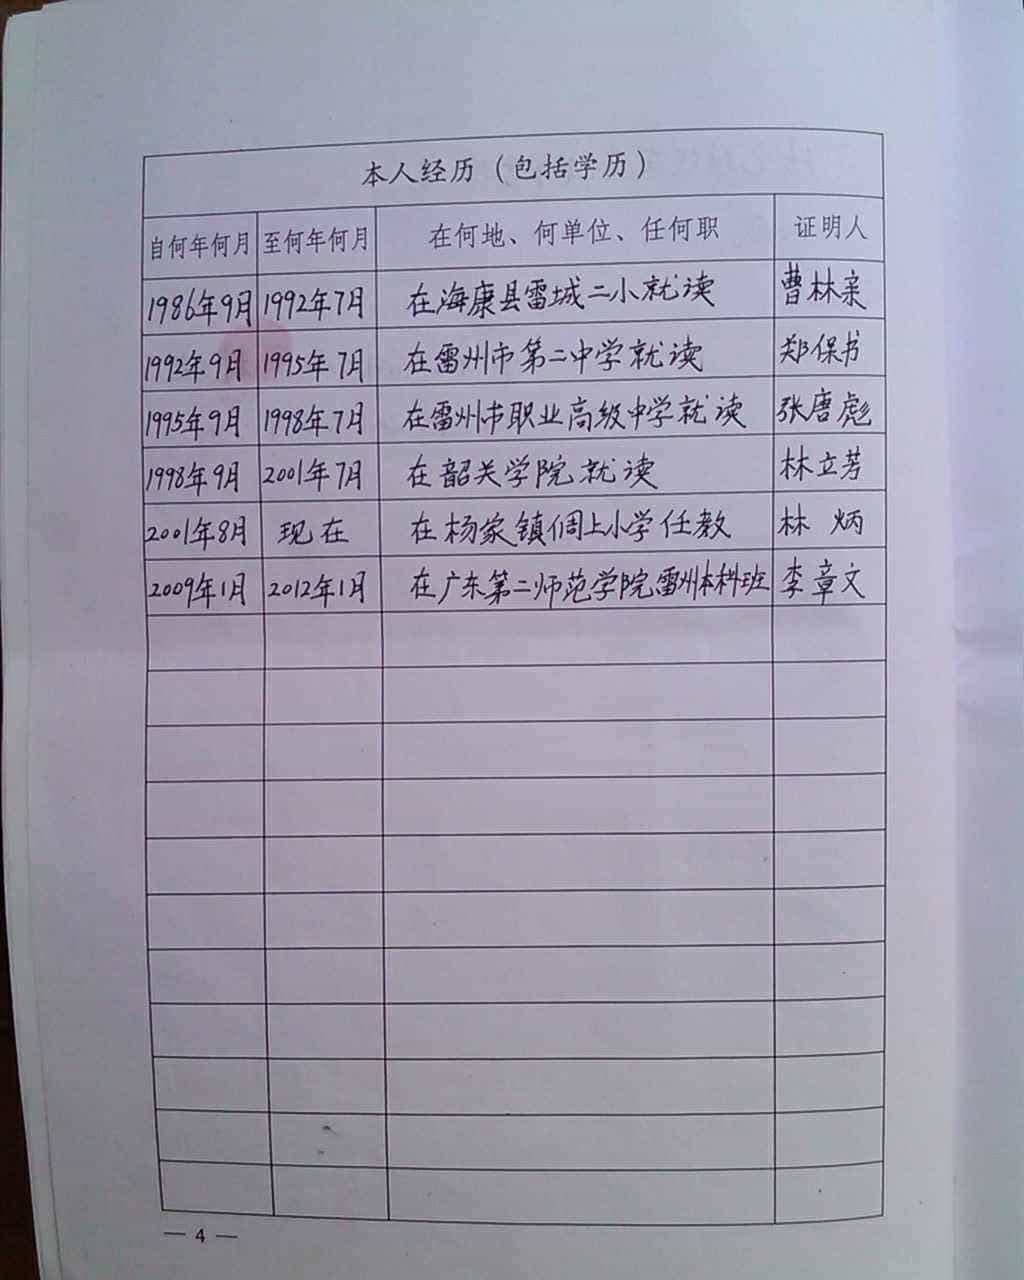 本人经历（包括学历）
自何年何月 至何年何月 在何地、何单位、任何职 证明人
1986年9月 1992年7月 在海康县雷城二小就读 曹林亲
1992年9月 1995年7月 在雷州市第二中学就读 郑保书
1995年9月 1998年7月 在雷州市职业高级中学就读 张唐彪
1998年9月 2001年7月 在韶关学院就读 林立芳
2001年8月 现在 在杨家镇倜上小学任教 林炳
2009年1月 2012年1月 在广东第二师范学院雷州本科班 李章文
— 4 —